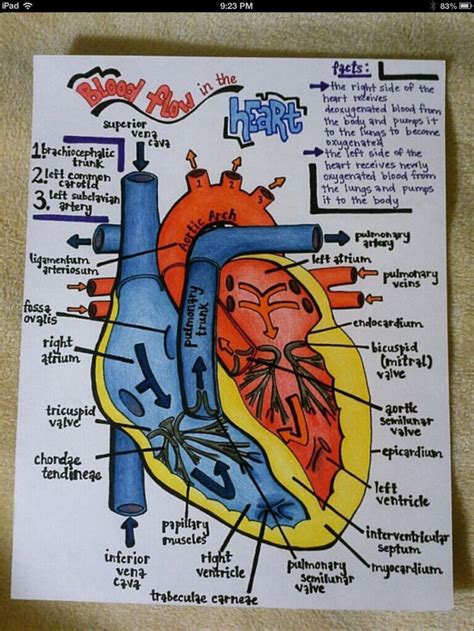 iPad
9:23 PM
83%
Blood flow in the
heart
facts:
the right side of the
heart receives
deoxygenated blood from
the body and pumps it
to the lungs to become
oxygenated
the left side of the
heart receives newly
oxygenated blood from
the lungs and pumps
it to the body
superior
vena
cava
1. brachiocephalic
trunk
2. left common
carotid
3. left subclavian
artery
1 2 3
Aortic Arch
ligamentum
arteriosum
fossa
ovalis
right
atrium
tricuspid
valve
chordae
tendineae
inferior
vena
cava
papillary
muscles
right
ventricle
trabeculae carneae
pulmonary
trunk
pulmonary
artery
left atrium
pulmonary
veins
endocardium
bicuspid
(mitral)
valve
aortic
semilunar
valve
epicardium
left
ventricle
interventricular
septum
myocardium
pulmonary
semilunar
valve